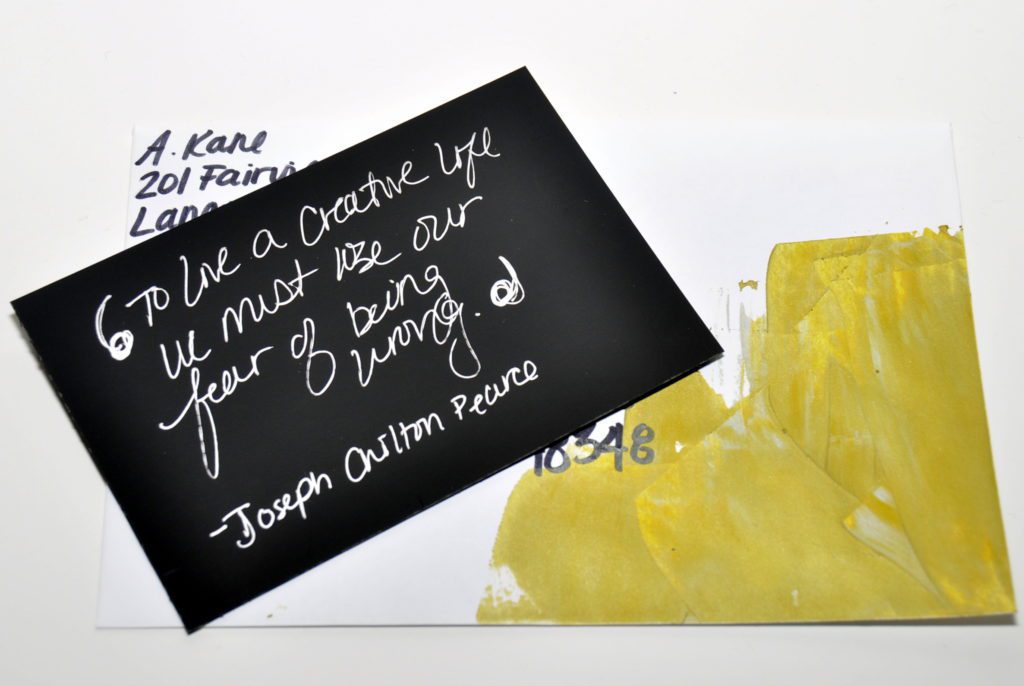 A. Kane
201 Fairvi
Lan
“To live a creative life
we must lose our
fear of being
wrong.”
-Joseph Chilton Pearce
18348